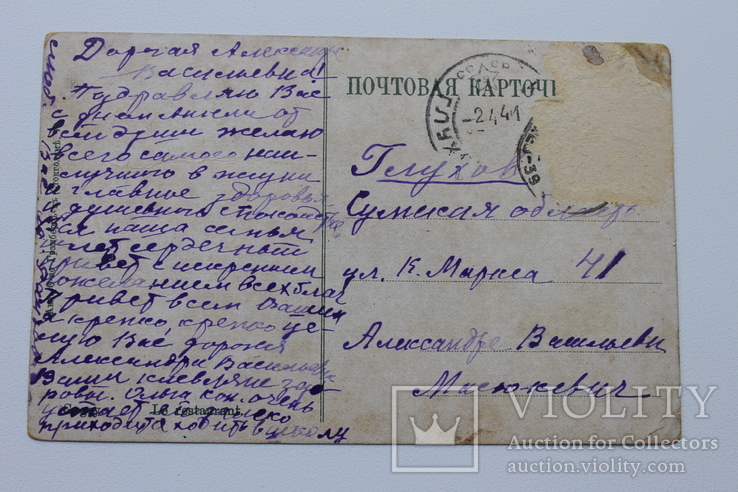 Дорогая Александра
Васильевна!
Поздравляю Вас
с днем Ангела от
всей души желаю
всего самого наи-
лучшего в жизни
главное здоровья
душевного спокойства
вся наша семья
шлет сердечный
привет с искренним
пожеланием всех благ
привет всем Вашим
и крепко, крепко це-
лую Вас дорогая
Александра Васильев
Ваши киевляне здо-
ровы. Ольга кон. очень
устает далеко
приходится ходить в школу
Le restaurant.
ПОЧТОВАЯ КАРТОЧ
-2.4.41
-39
Глухов
Сумская область
ул. К. Маркса 41
Александре Васильевн
Масюкевич
VIOLITY
Auction for Collectors
auction.violity.com